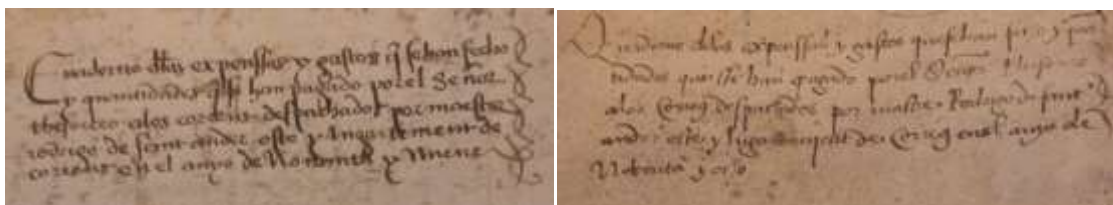 Cuaderno dlas expenssas y gastos q̃ se han fecho
y quantidades q̃ se han pagado por el Señor
thesorero alos correus despachados por maestre
rodrigo de sant ander oste y
correus en el anyo de Nobenta y Nueve
Quaderno delas expenssas y gastos que se han
tidades que se han pagado por el Senyor
alos Correus despachados por mastre Rodrigo de sant
ander oste y de Correus en el anyo de
Nobenta y